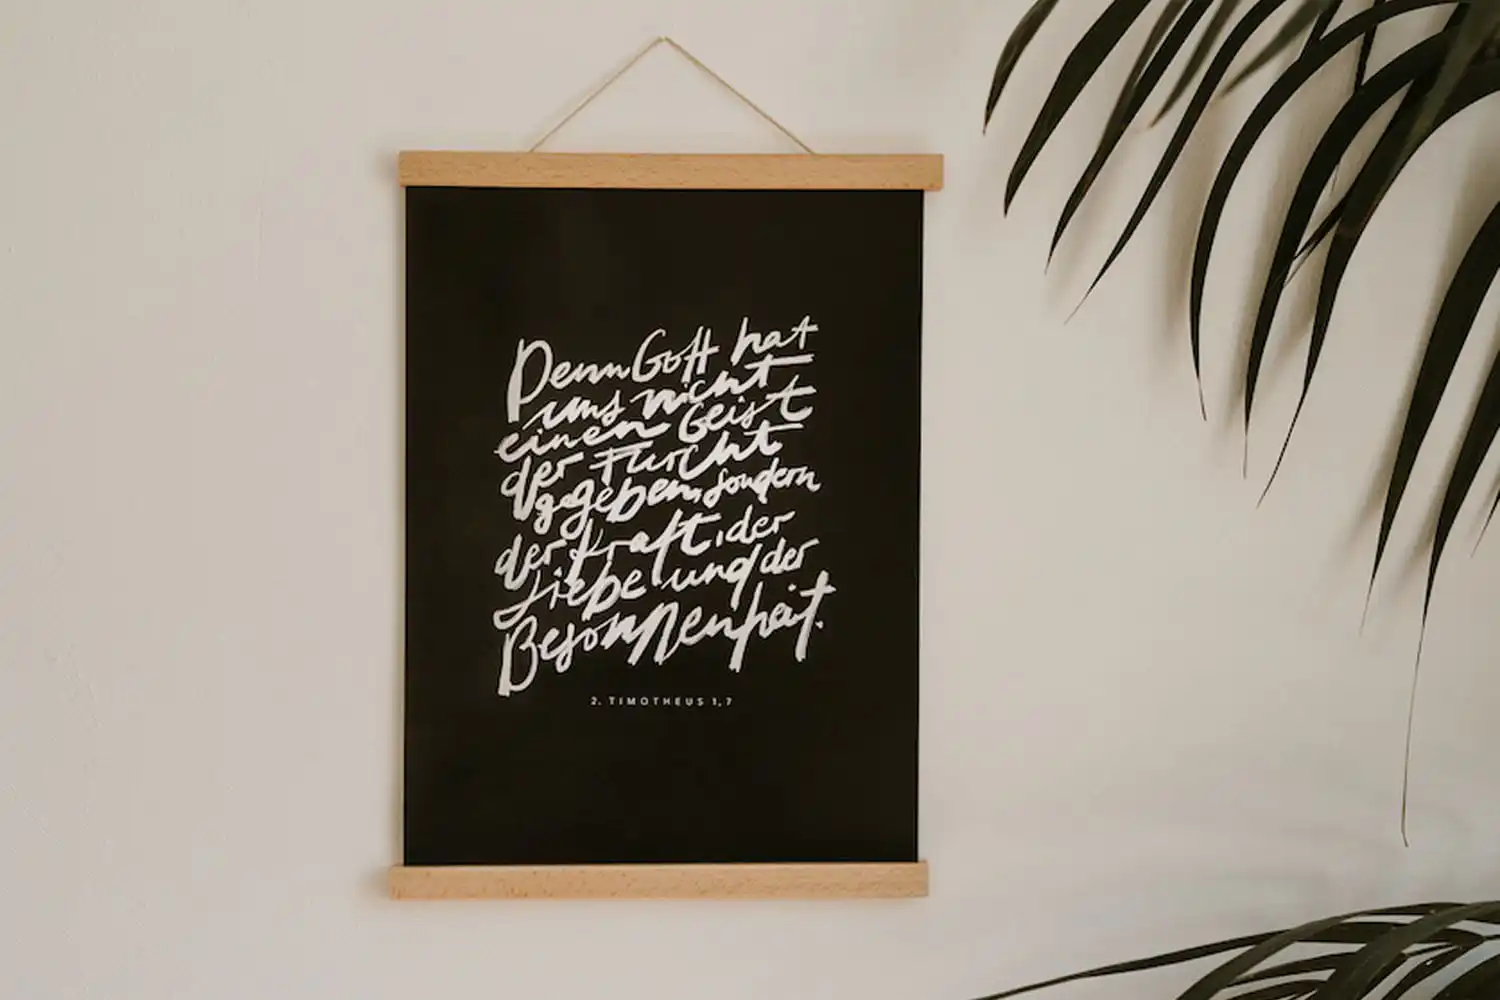 Denn Gott hat
uns nicht
einen Geist
der Furcht
gegeben, sondern
der Kraft, der
Liebe und der
Besonnenheit.
2. TIMOTHEUS 1,7